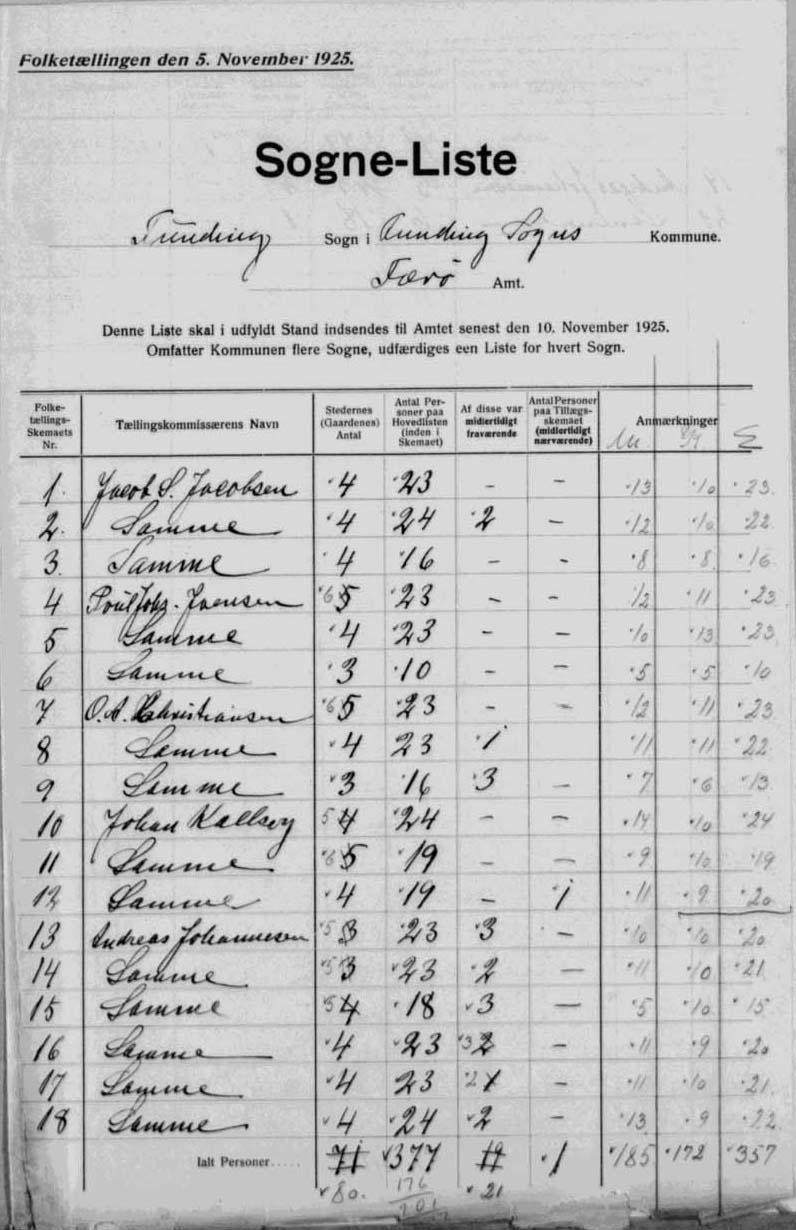 Folketællingen den 5. November 1925.
Sogne-Liste
Funding Sogn i Funding Sogns Kommune.
Færö Amt.
Denne Liste skal i udfyldt Stand indsendes til Amtet senest den 10. November 1925.
Omfatter Kommunen flere Sogne, udfærdiges een Liste for hvert Sogn.
Folketællings-Skemaets Nr. Tællingskommissærens Navn Stedernes (Gaardenes) Antal Antal Personer paa Hovedlisten (inden i Skemaet) Af disse var midlertidigt fraværende Antal Personer paa Tillægsskemaet (midlertidigt nærværende) Anmærkninger
M K Σ
1. Jacob S. Jacobsen 4 23 - - 13 10 23
2. Samme 4 24 2 - 12 10 22
3. Samme 4 16 - - 8 8 16
4 Poul Johs. Joensen 6 5 23 - - 12 11 23
5 Samme 4 23 - - 10 13 23
6 Samme 3 10 - - 5 5 10
7 O. A. Christiansen 6 5 23 - - 12 11 23
8 Samme 4 23 1 11 11 22
9 Samme 3 16 3 - 7 6 13
10 Johan Kallsoy 5 4 24 - - 14 10 24
11 Samme 6 5 19 - - 9 10 19
12 Samme 4 19 - 1 11 9 20
13 Andreas Johannesen 5 3 23 3 - 10 10 20
14 Samme 5 3 23 2 - 11 10 21
15 Samme 5 4 18 3 - 5 10 15
16 Samme 4 23 3 2 - 11 9 20
17 Samme 4 23 2 1 - 11 10 21
18 Samme 4 24 2 - 13 9 22
Ialt Personer..... 71 377 1 185 172 357
80. 176 21
201